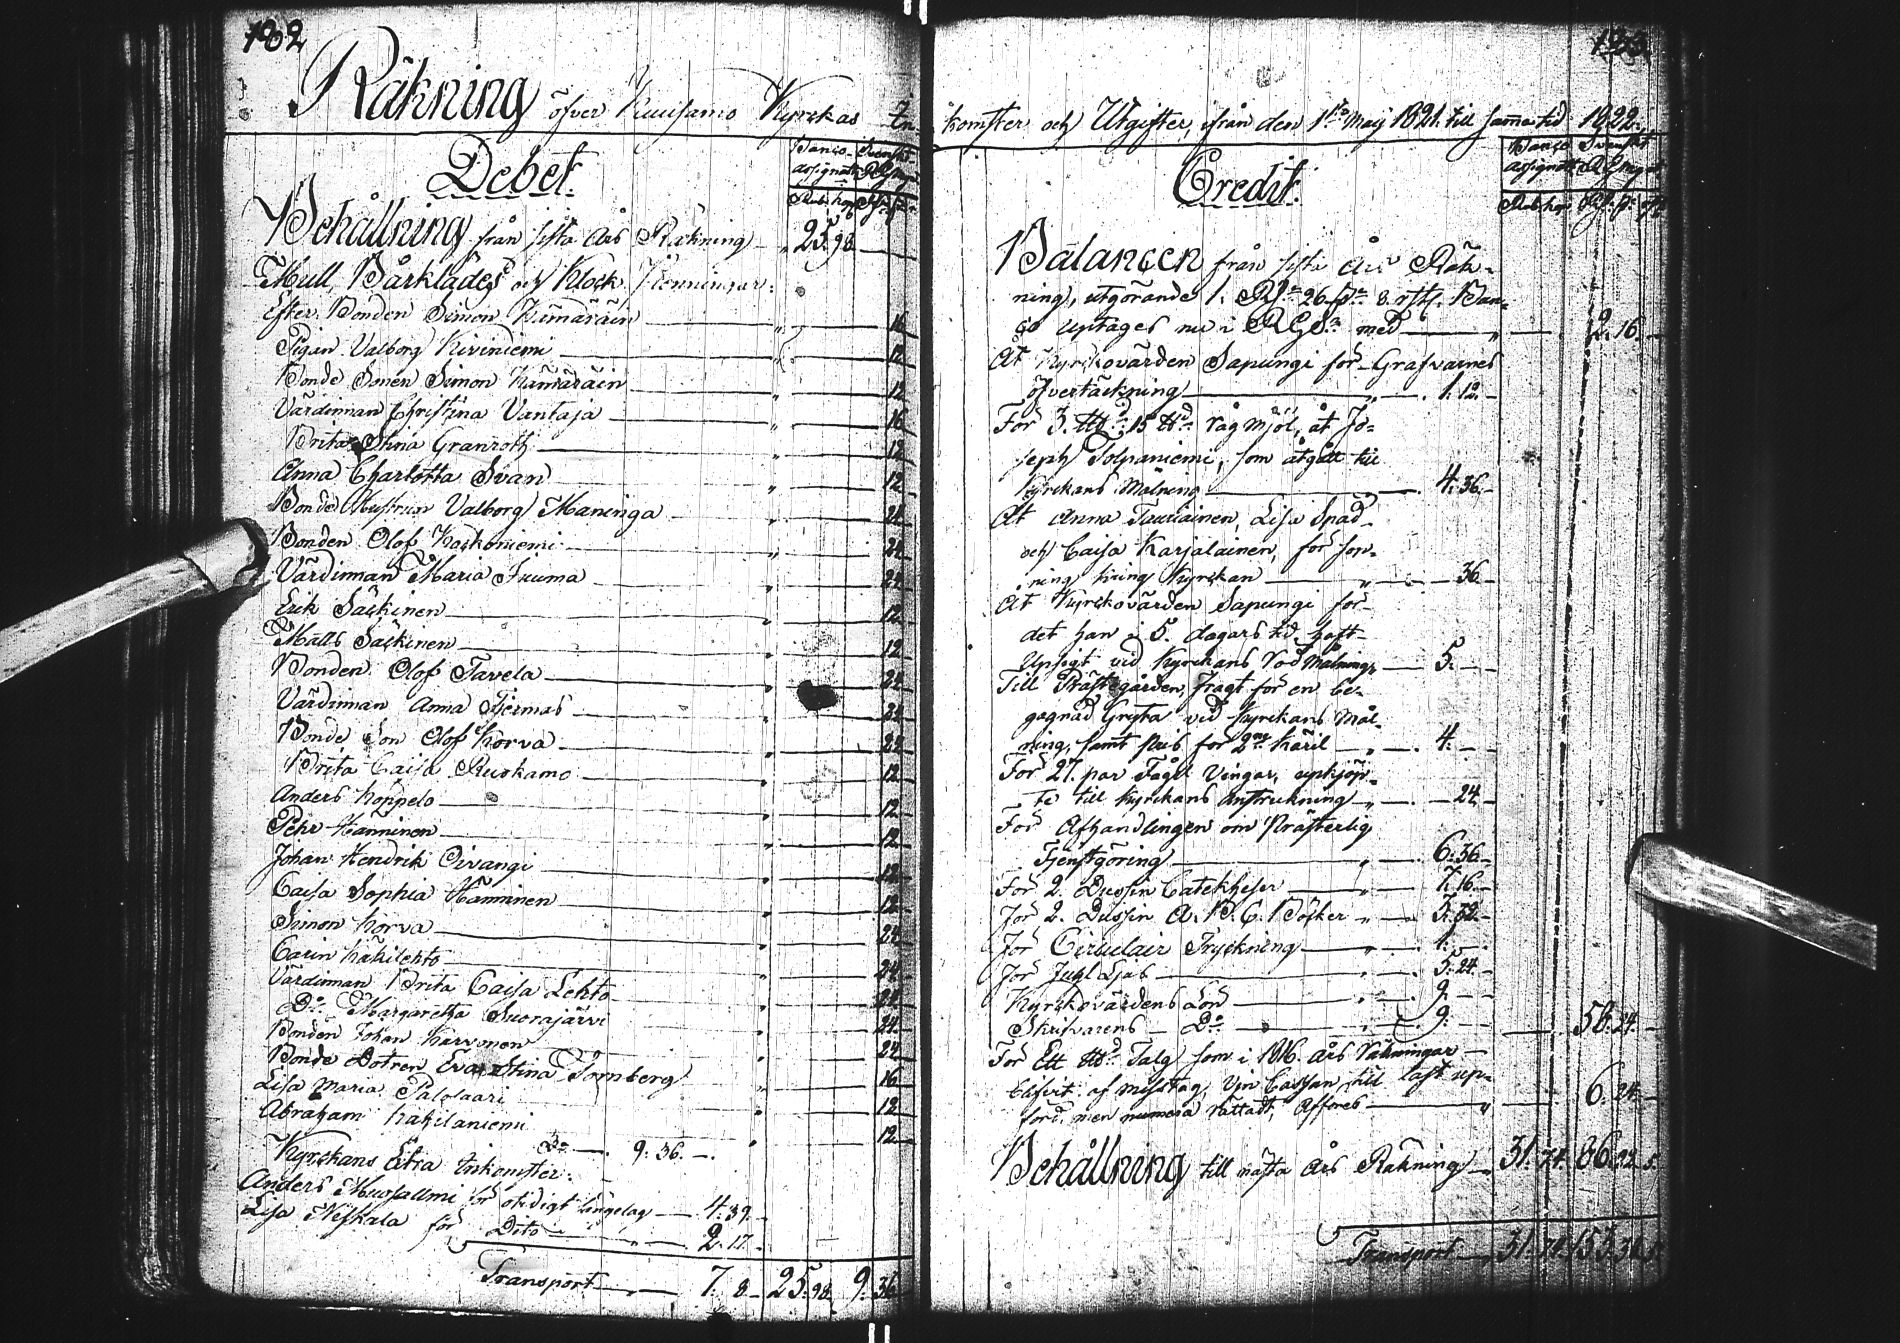 182
Räkning öfver Kuusamo Kyrckas In
Debet.
Banco assignat
Svenskt RGs mynt
Rub. kop
Behållning från sista Års Räkning 25. 98
Mull, Bårklädes och Klock Penningar:
Efter Bonden Simon Kämäräin 16
Pigan Valborg Kiviniemi 12
Bonde Sonen Simon Kämäräin 12
Värdinnan Christina Vantaja 16
Brita Stina Granroth 12
Anna Charlotta Svan 12
Bonde Hustrun Valborg Maninga 24
Bonden Olof Kaskoniemi 24
Värdinnan Maria Juuma 24
Erik Säckinen 12
Matts Säckinen 12
Bonden Olof Tavela 24
Värdinnan Anna Tiermas 24
Bonde Son Olof Korva 24
Brita Caisa Ruokamo 12
Anders Koppelo 12
Pehr Hänninen 12
Johan Hendrik Oivangi 12
Caisa Sophia Hänninen 12
Simon Korva 24
Carin Käkilehto 24
Värdinnan Brita Caisa Lehto 24
Do Margaretha Suorajärvi 24
Bonden Johan Karvonen 24
Bonde Dotren Eva Stina Törnberg 16
Lisa Maria Palolaari 12
Abraham Käkilaniemi 12
Do 9. 36.
Kyrckans Extra Inkomster:
Anders Muosalmi för otidigt sängelag 4. 39.
Lisa Neskala för Dito 2. 17.
Transport 7. 8. 25. 98. 9. 36
183
komster och Utgifter, ifrån den 1sta Maij 1821. till samma tid 1822.
Credit.
Banco assignat
Svenskt RGs mynt
Rub. kop
Balancen från sista Års Räk-
ning, utgörande 1. Rd 26 s. 8. rst. Ban-
co uptages nu i RGs med 2. 16.
Åt Kyrckovärden Sapungi för Grafvarnes
öfvertäckning 1. 12.
För 3. Ltt 15 tt råg mjöl, åt Jo-
seph Tolpaniemi, som åtgått till
Kyrckans Målning 4. 36.
Åt Anna Tauriainen, Lisa Spad
och Caisa Karjalainen, för
ning kring Kyrckan 36
Åt Kyrckovärden Sapungi för
det han i 5. dagars tid haft
Upsigt vid Kyrckans röd Målning 5.
Till Prästegården, fragt för en be-
gagnad Gryta vid Kyrckans Mål-
ning, samt pris för 2ne Käril 4.
För 27. par Fågel Vingar, upkjöp-
te till Kyrckans anstrukning 24
För Afhandlingen om Prästerlig
Tjenstgöring 6. 36
För 2. Dussin Catekheser 7. 16.
För 2. Dussin A. B. C. Böcker 3. 32.
För Circulair Tryckning 1.
För Juhl Ljus 5. 24.
Kyrckovärdens Lön 9.
Skrifvarens Do 9. 58. 24.
För Ett Ltt Talg som i 1816. års Räkningar
blifvit af misstag, Cassan till last up-
förd, men numera rättadt, afföres 6. 24.
Behållning till nästa Års Räkning 31. 74. 86. 22. 5.
Transport 31. 74. 153. 38. 5.